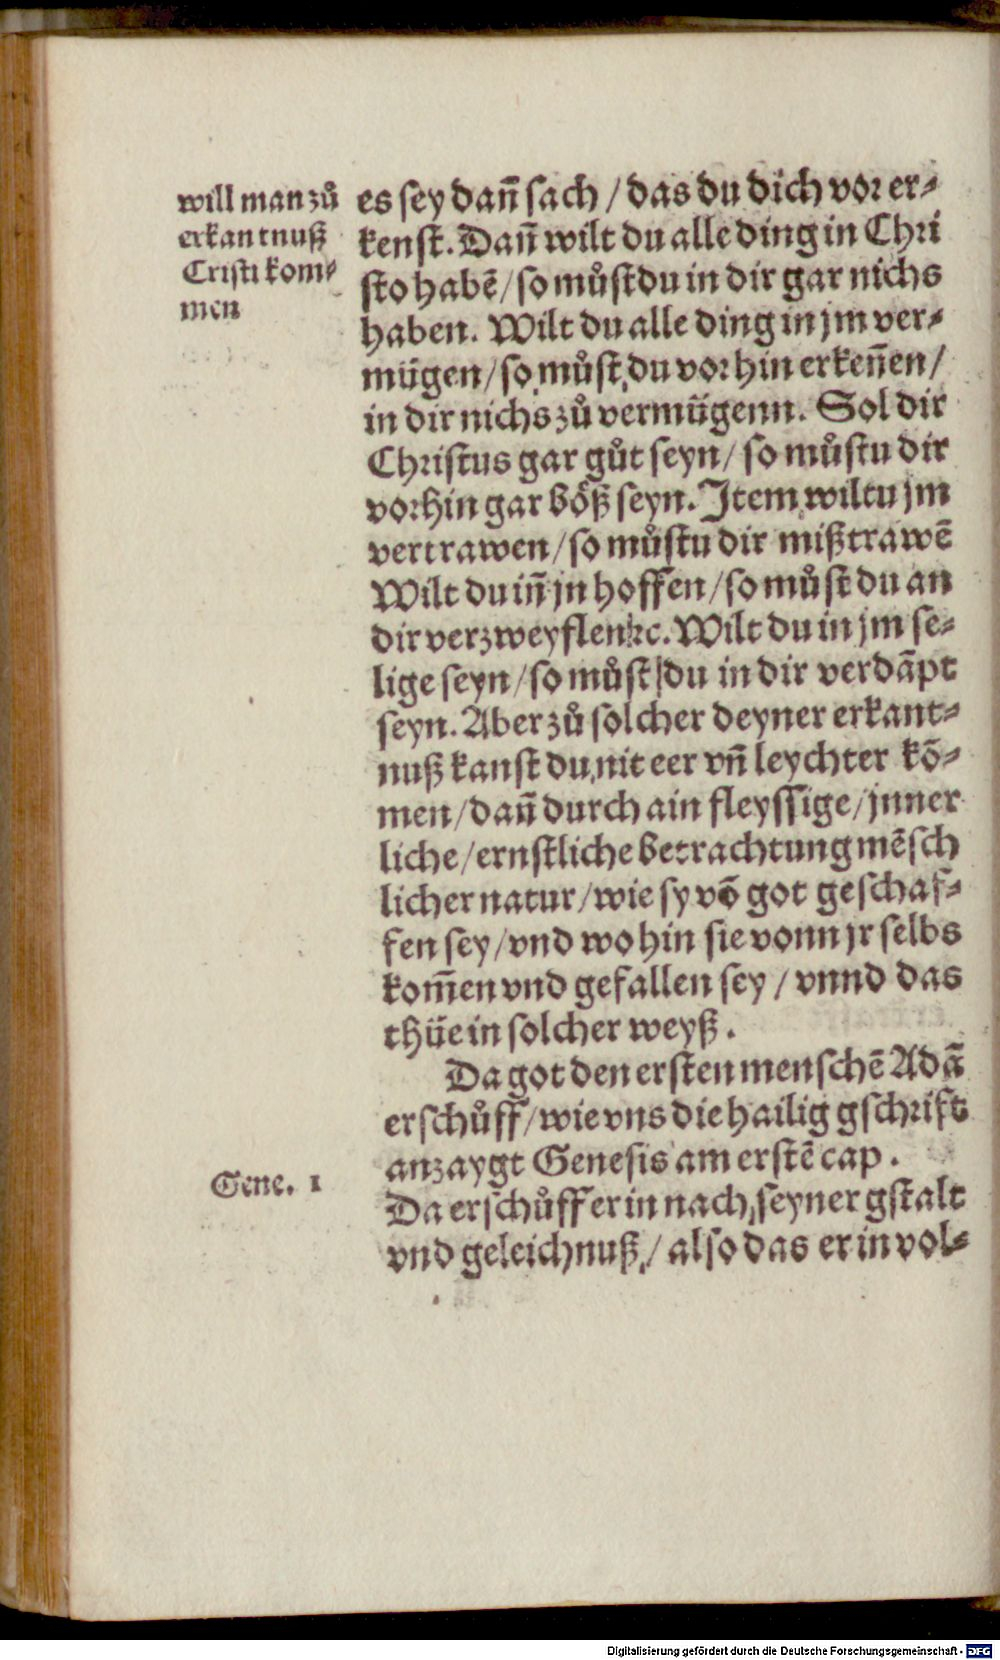 will man zů
erkantnuß
Cristi kom⸗
men
es sey dañ sach / das du dich vor er⸗
kenst. Dañ wilt du alle ding in Chri
sto habẽ / so můst du in dir gar nichs
haben. Wilt du alle ding in jm ver⸗
mügen / so můst du vorhin erkeñen /
in dir nichs zů vermügenn. Sol dir
Christus gar gůt seyn / so můstu dir
vorhin gar böß seyn. Item wiltu jm
vertrawen / so můstu dir mißtrawẽ
Wilt du iñ jn hoffen / so můst du an
dir verzweyflen ꝛc. Wilt du in jm se⸗
lige seyn / so můst du in dir verdãpt
seyn. Aber zů solcher deyner erkant⸗
nuß kanst du nit eer vñ leychter kõ⸗
men / dañ durch ain fleyssige / jnner
liche / ernstliche betrachtung mẽsch
licher natur / wie sy võ got geschaf⸗
fen sey / vnd wo hin sie vonn jr selbs
kom̃en vnd gefallen sey / vnnd das
thüe in solcher weyß.
Da got den ersten menschẽ Adã
erschůff / wie vns die hailig gschrift
anzaygt Genesis am erstẽ cap.
Gene. 1
Da erschůff er in nach seyner gstalt
vnd geleichnuß / also das er in vol⸗
Digitalisierung gefördert durch die Deutsche Forschungsgemeinschaft - DFG